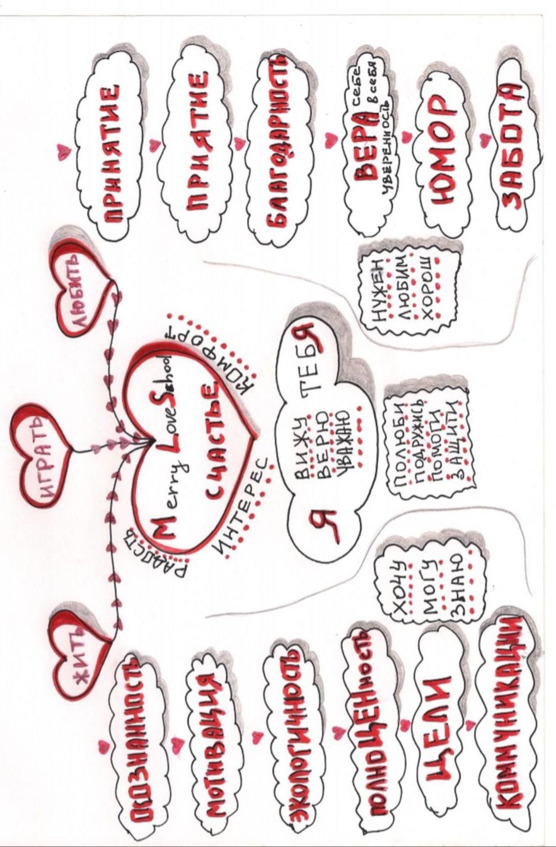 ЖИТЬ
ИГРАТЬ
ЛЮБИТЬ
ОСОЗНАННОСТЬ
МОТИВАЦИЯ
ЭКОЛОГИЧНОСТЬ
ПОЛНОЦЕННОСТЬ
ЦЕЛИ
КОММУНИКАЦИИ
Merry Love School
СЧАСТЬЕ
РАДОСТЬ
ИНТЕРЕС
КОМФОРТ
Я
ВИЖУ
ВЕРЮ
УВАЖАЮ
ТЕБЯ
ХОЧУ
МОГУ
ЗНАЮ
ПОЛЮБИ
ПОДРУЖИСЬ
ПОМОГИ
ЗАЩИТИ
НУЖЕН
ЛЮБИМ
ХОРОШ
ПРИНЯТИЕ
ПРИЯТИЕ
БЛАГОДАРНОСТЬ
ВЕРА себе
в себя
УВЕРЕННОСТЬ
ЮМОР
ЗАБОТА